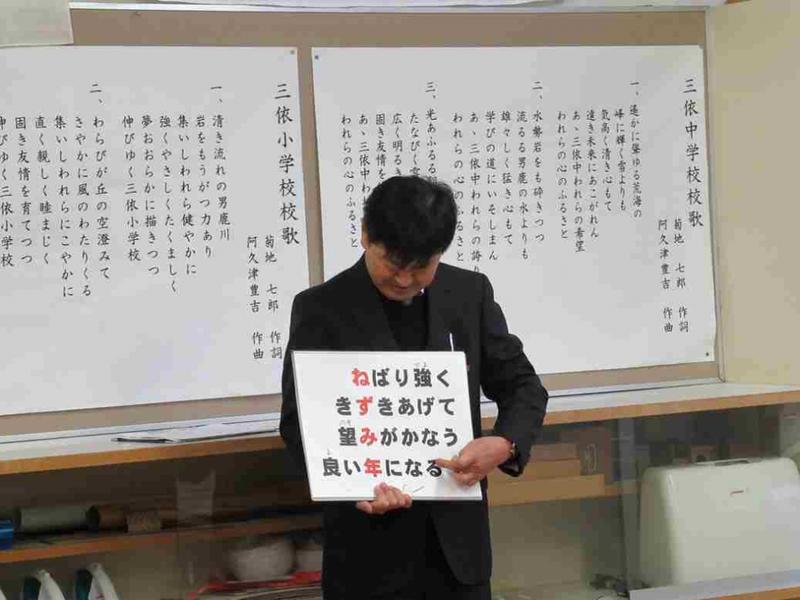 三依中学校校歌
菊地 七郎 作詞
阿久津豊吉 作曲
一、遥かに聳ゆる荒海の
峰に輝く雪よりも
気高く清き心もて
遠き未来にあこがれん
あゝ三依中われらの希望
われらの心のふるさと
二、水勢岩をも砕きつつ
流るる男鹿の水よりも
雄々しく猛き心もて
学びの道にいそしまん
あゝ三依中われらの誇り
われらの心のふるさと
三、光あふるる
たなびく
広く明るき
固き友情を
あゝ三依中わ
われらの心のふるさと
三依小学校校歌
菊地 七郎 作詞
阿久津豊吉 作曲
一、清き流れの男鹿川
岩をもうがつ力あり
集いしわれら健やかに
強くやさしくたくましく
夢おおらかに描きつつ
伸びゆく三依小学校
二、わらびが丘の空澄みて
さやかに風のわたりくる
集いしわれらにこやかに
直く親しく睦まじく
固き友情を育てつつ
伸びゆく三依小学校
ねばり強く
きずきあげて
望みがかなう
良い年になる